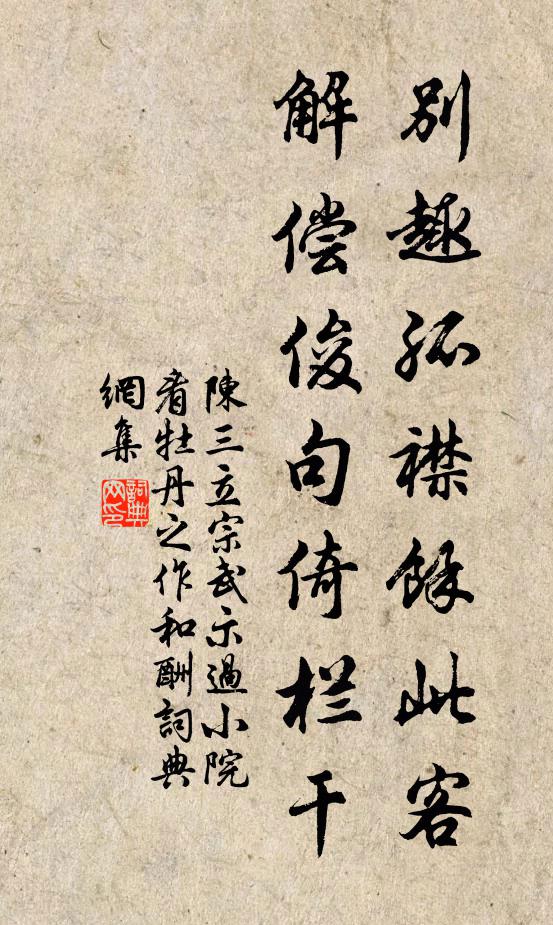 别趣孤襟餘此客
解偿俊句倚栏干
陳三立宗武示過小院
看牡丹之作和酬詞典
網集
詞典
网印